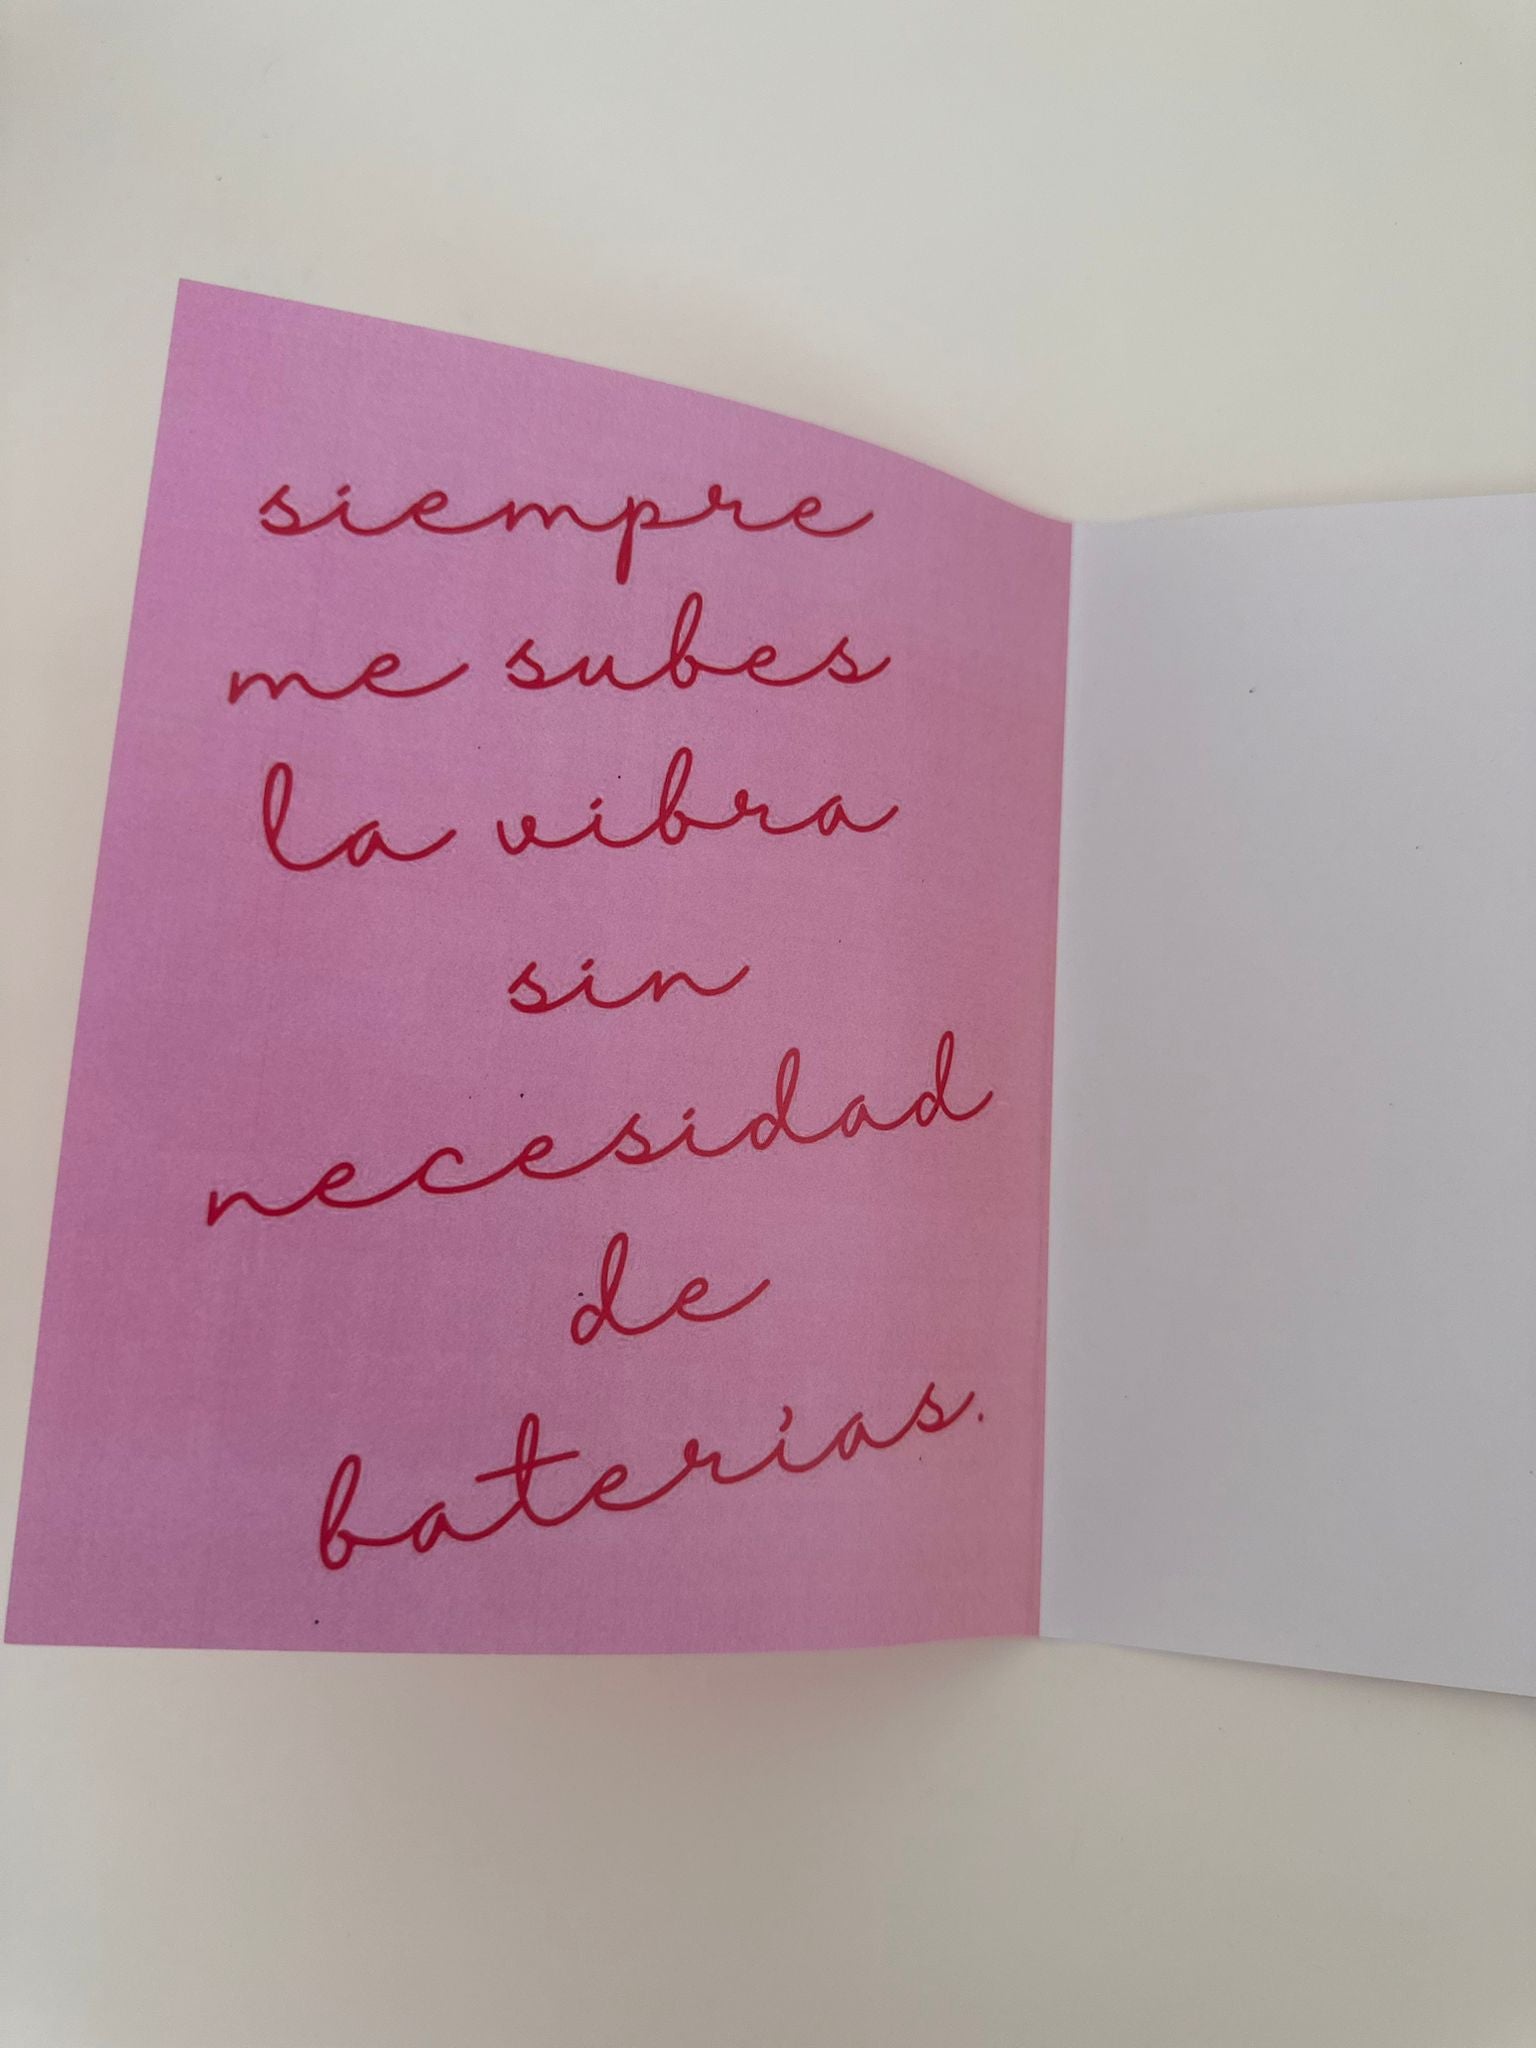 siempre
me subes
la vibra
sin
necesidad
de
baterías.